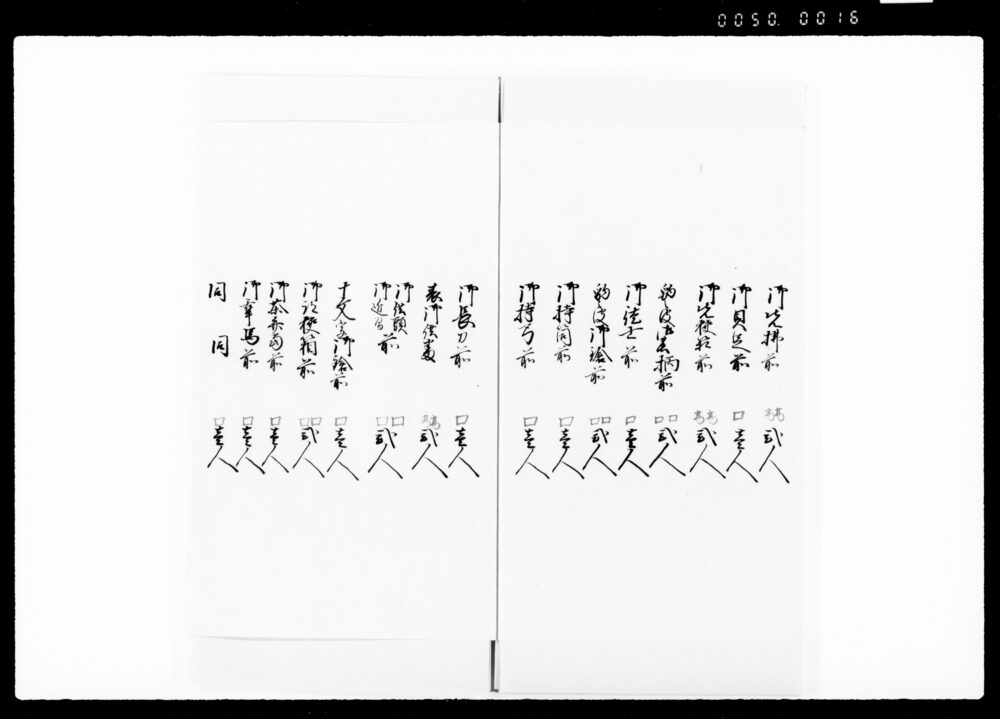 0050. 0016
御先拂前 高高 弐人
御具足前 口 壱人
御先挟箱前 高高 弐人
豹皮 柄前 口口 弐人
御徒士前 口 壱人
豹皮御鎗前 口口 弐人
御持筒前 口 壱人
御持弓前 口 壱人
御長刀前 口 壱人
表御供番 高高 弐人
御徒頭
御近習 前 口口 弐人
十文字御鎗前 口 壱人
御跡挟箱前 口口 弐人
御茶弁当前 口 壱人
御牽馬前 口 壱人
同 同 口 壱人